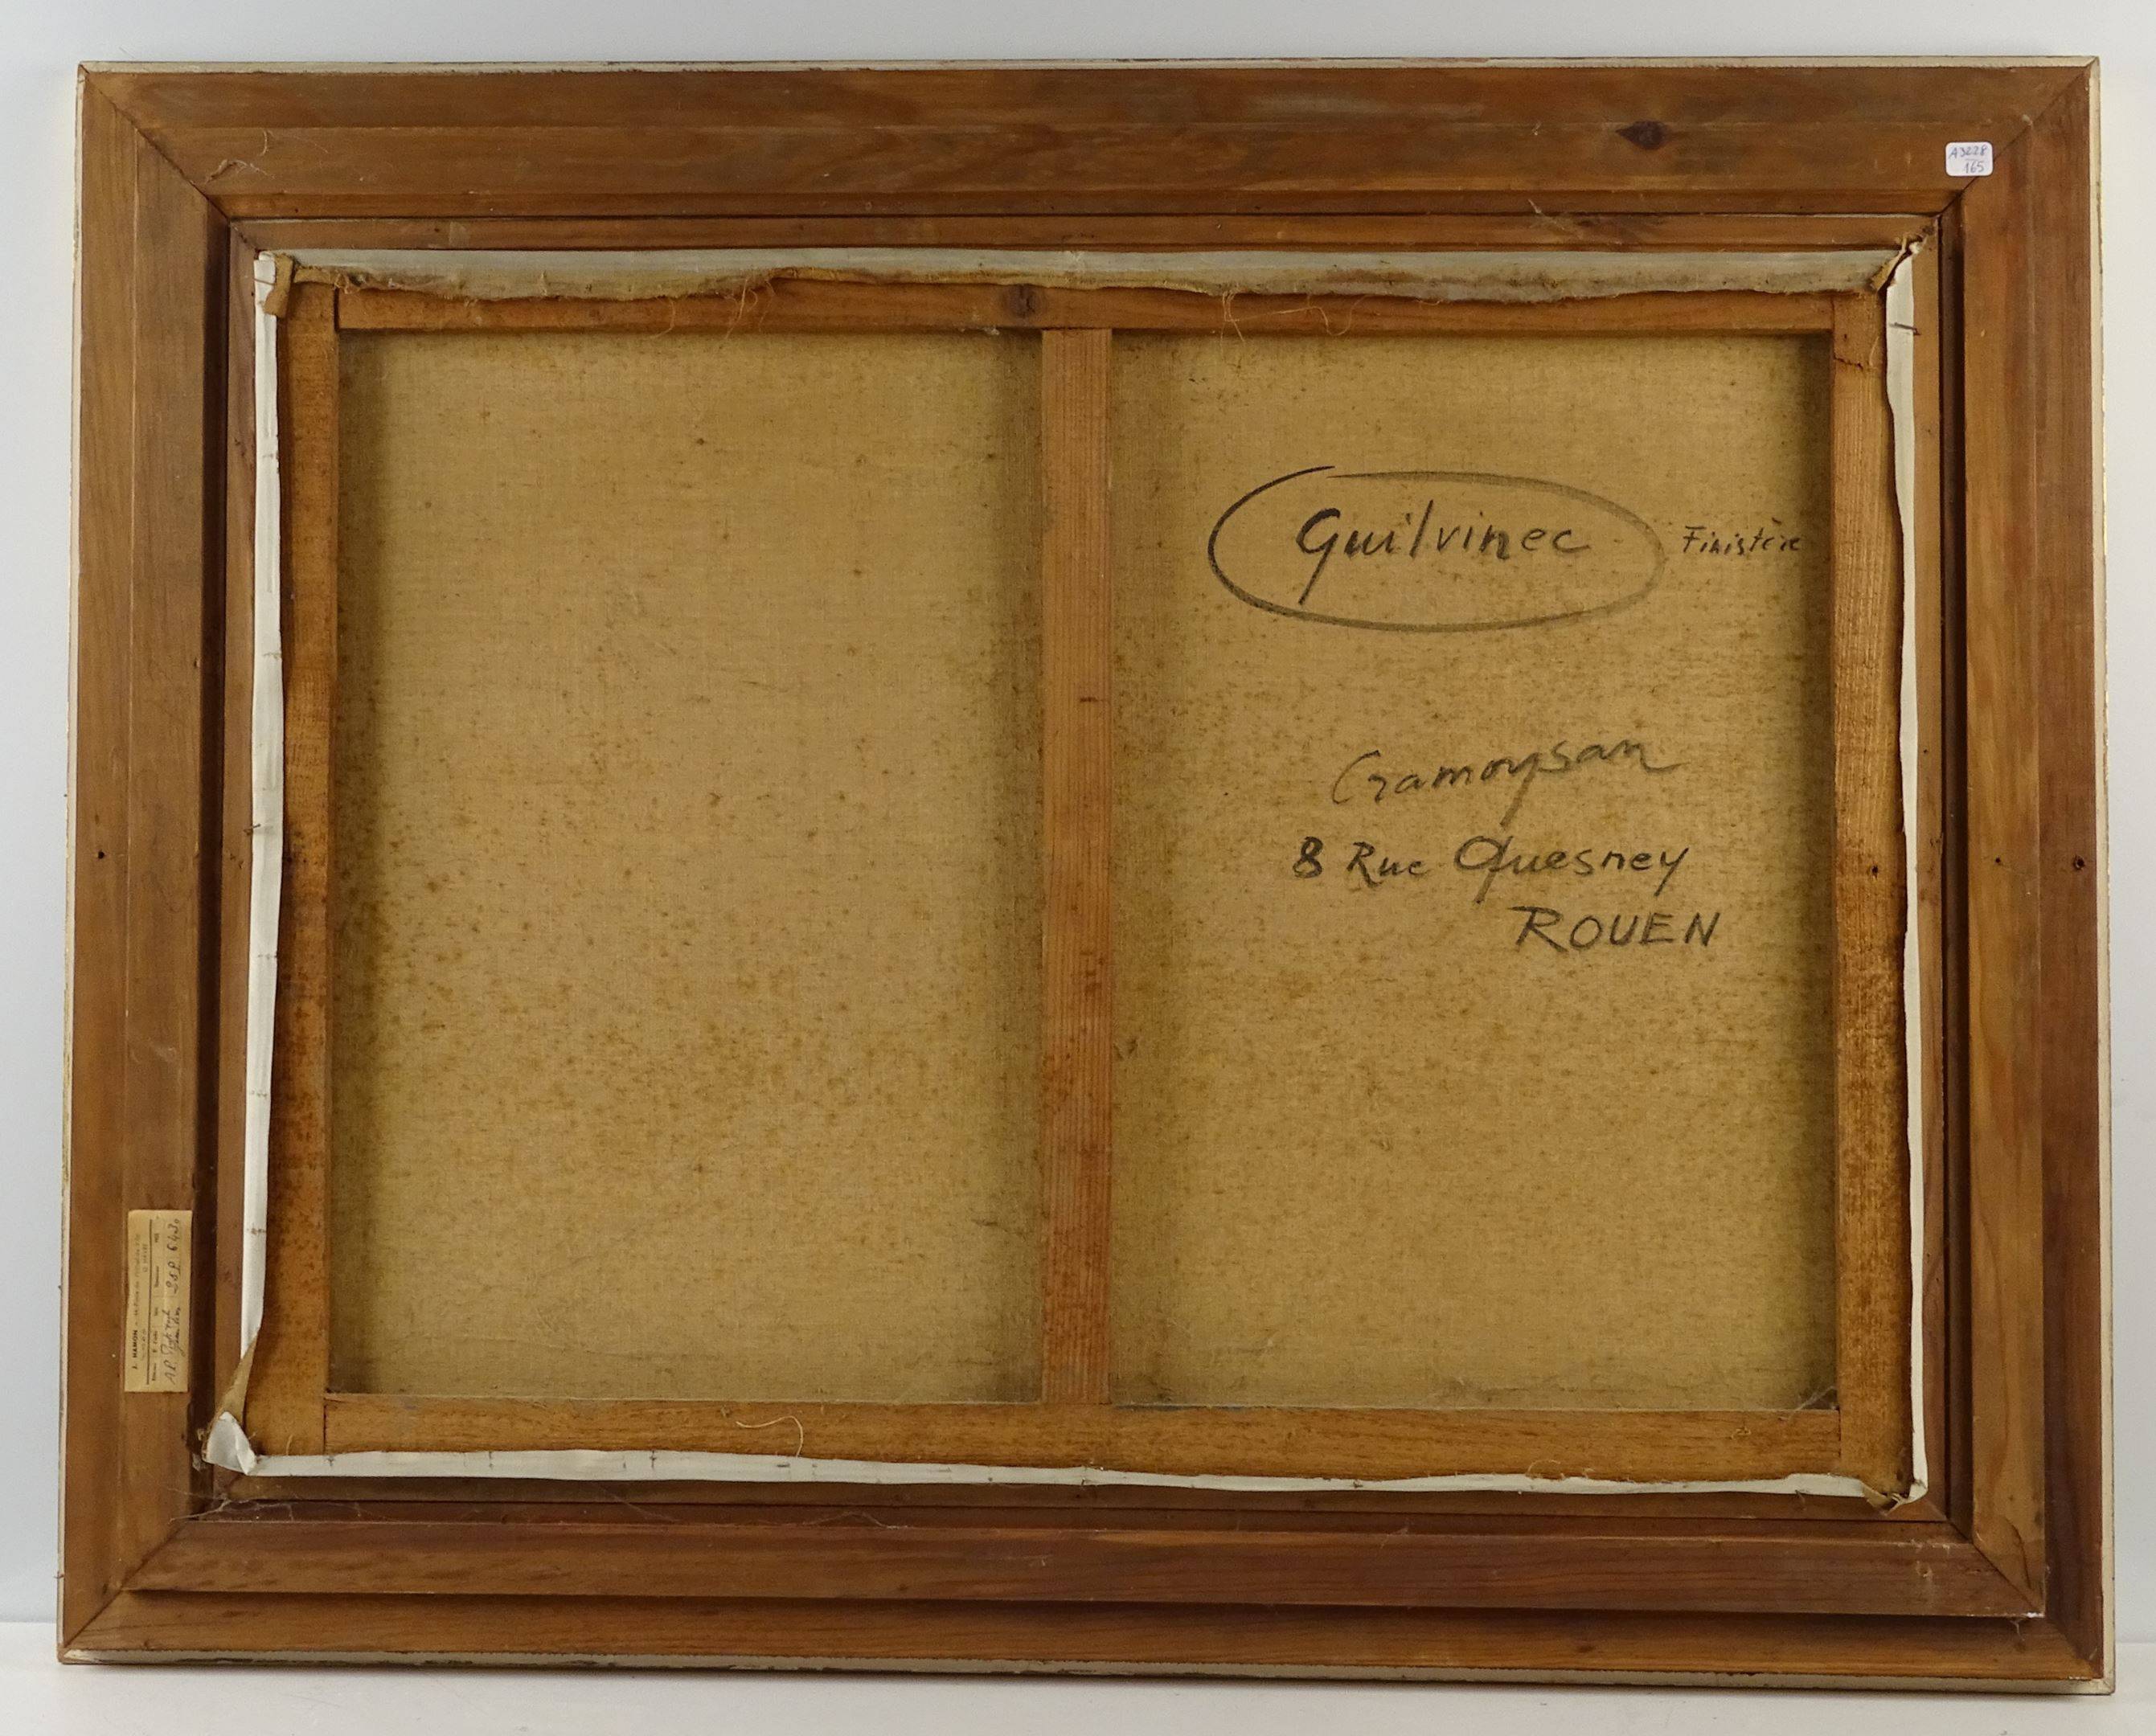 A3228
165
Guilvinec Finistère
Cramoysan
8 Rue Quesney
ROUEN
J. HAMON